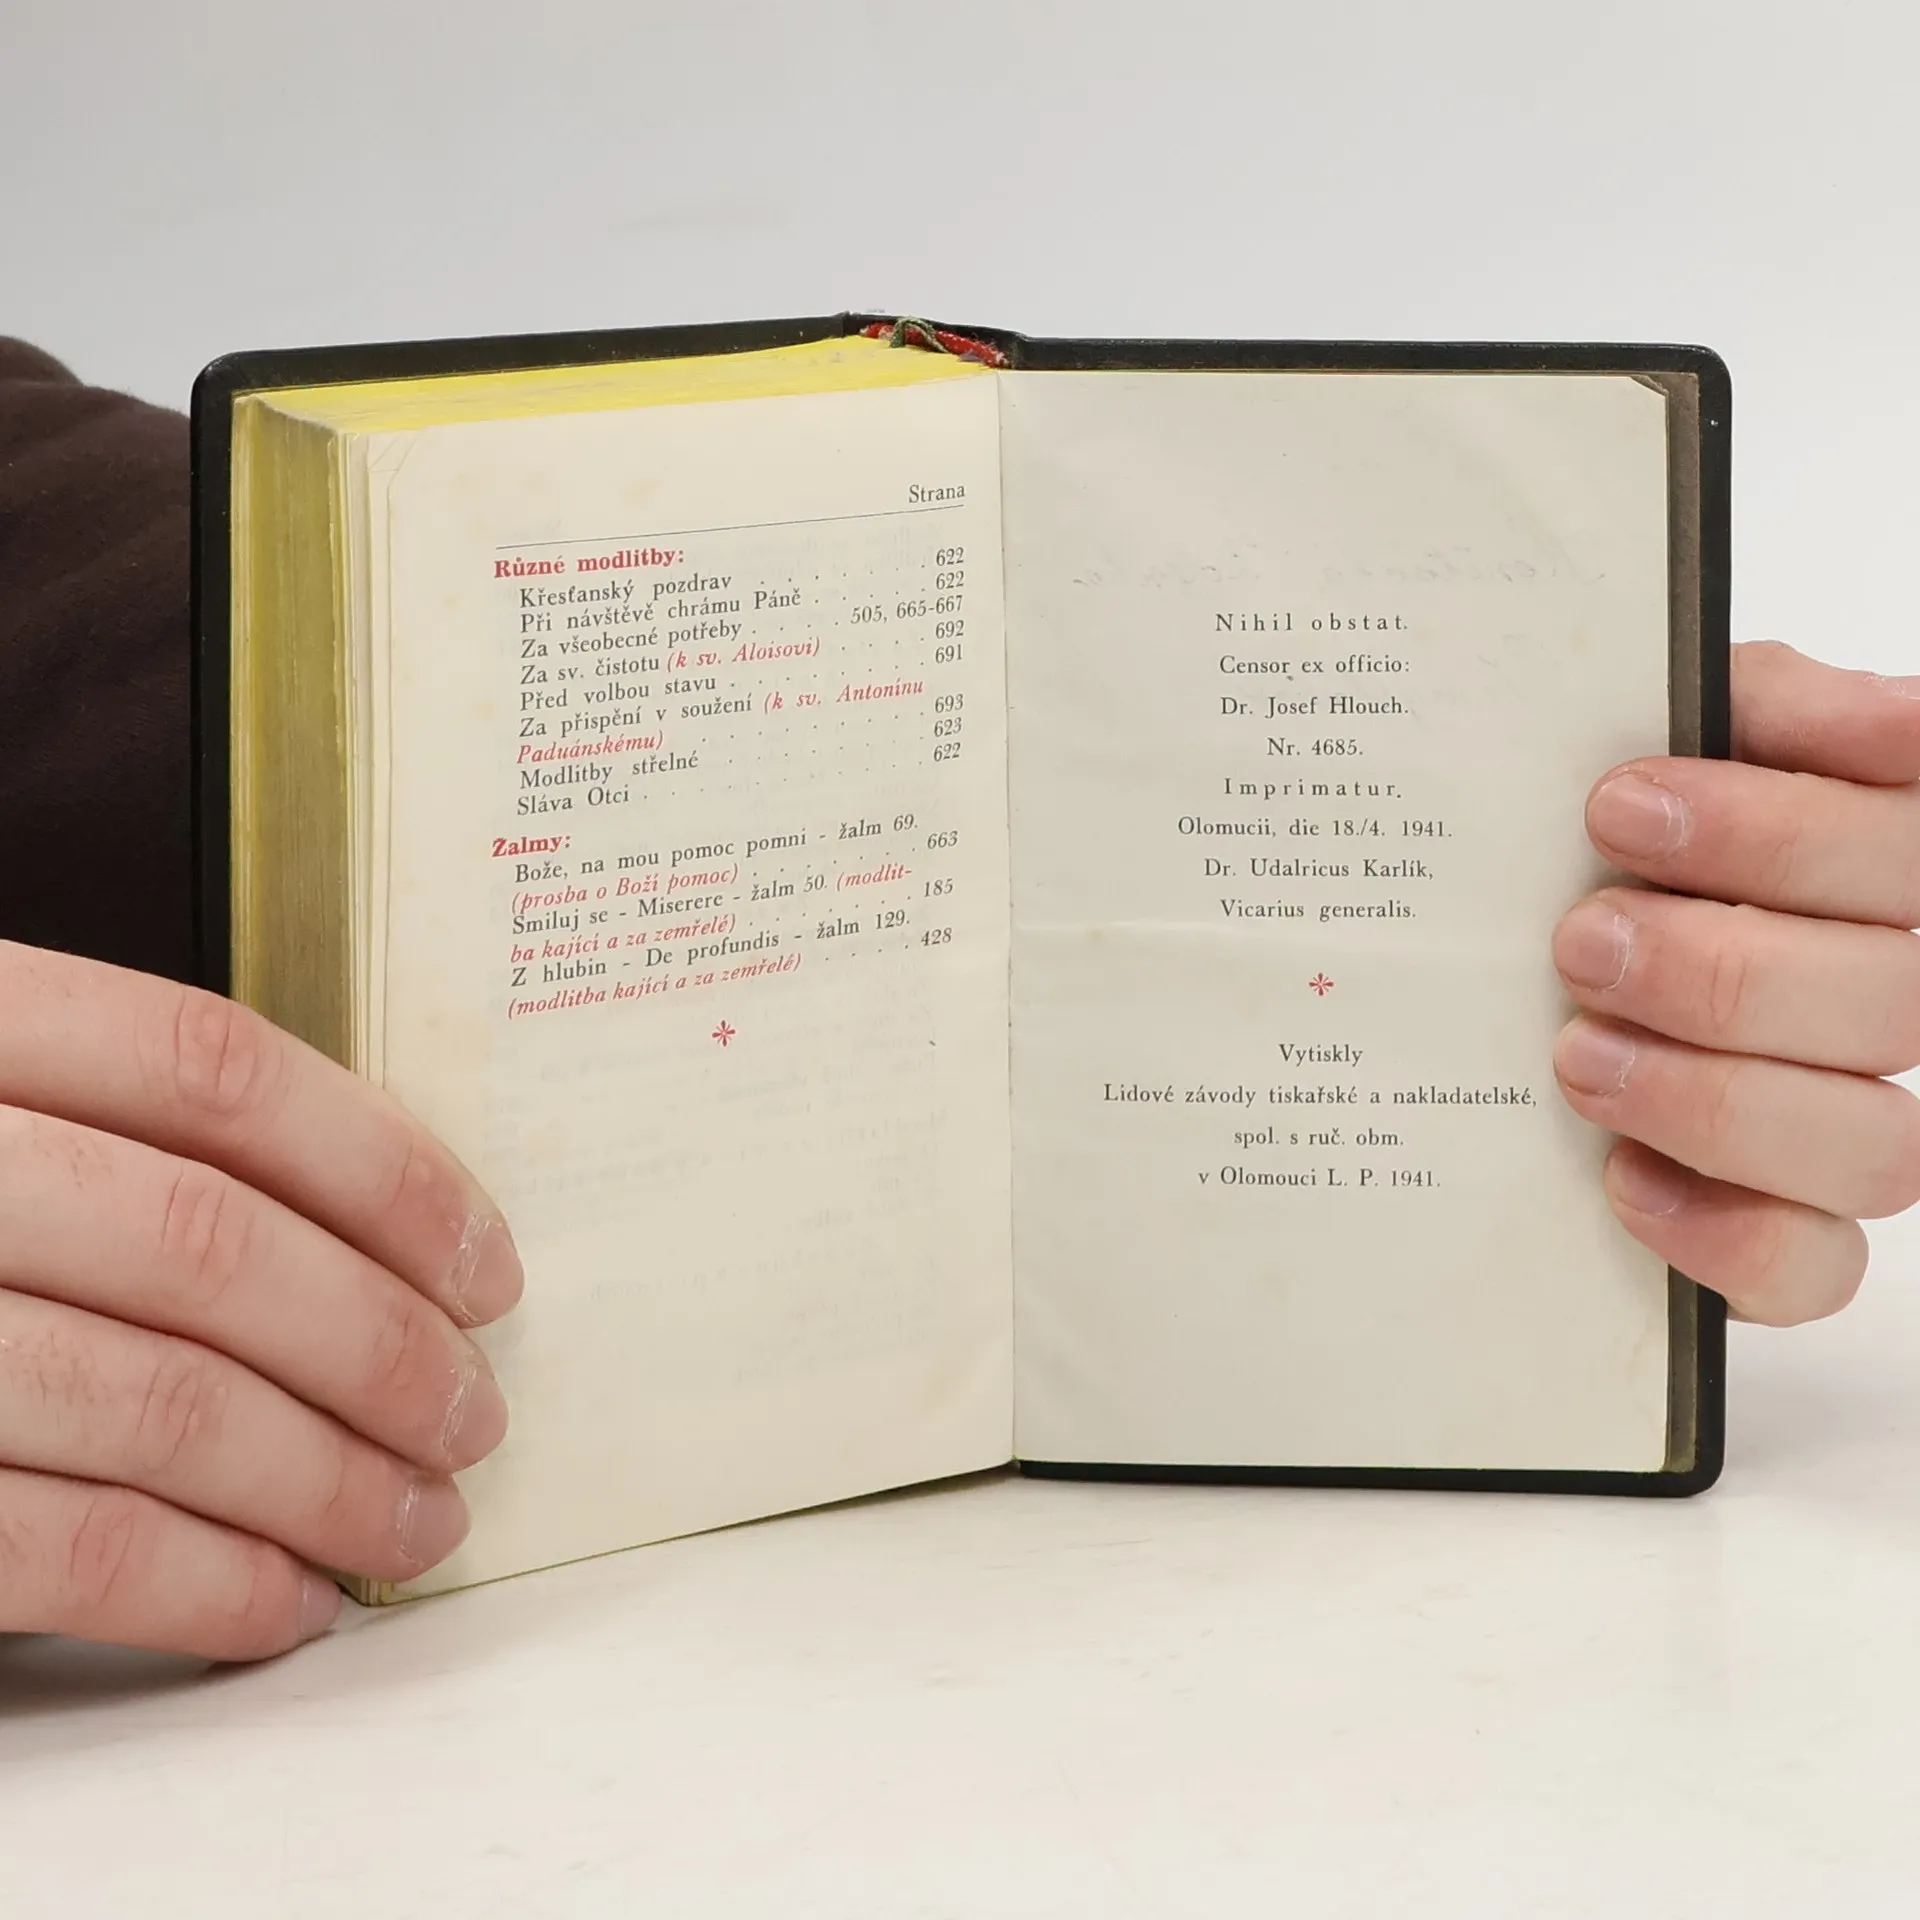 Strana
Různé modlitby:
Křesťanský pozdrav . . . . . . . 622
Při návštěvě chrámu Páně . . . . . 622
Za všeobecné potřeby . . . . 505, 665-667
Za sv. čistotu (k sv. Aloisovi) . . . . 692
Před volbou stavu . . . . . . . . 691
Za přispění v soužení (k sv. Antonínu
Paduánskému) . . . . . . . . 693
Modlitby střelné . . . . . . . . 623
Sláva Otci . . . . . . . . . . 622
Žalmy:
Bože, na mou pomoc pomni - žalm 69.
(prosba o Boží pomoc) . . . . . . 663
Smiluj se - Miserere - žalm 50. (modlit-
ba kající a za zemřelé) . . . . . . 185
Z hlubin - De profundis - žalm 129.
(modlitba kající a za zemřelé) . . . . 428
Nihil obstat.
Censor ex officio:
Dr. Josef Hlouch.
Nr. 4685.
Imprimatur.
Olomucii, die 18./4. 1941.
Dr. Udalricus Karlík,
Vicarius generalis.
Vytiskly
Lidové závody tiskařské a nakladatelské,
spol. s ruč. obm.
v Olomouci L. P. 1941.